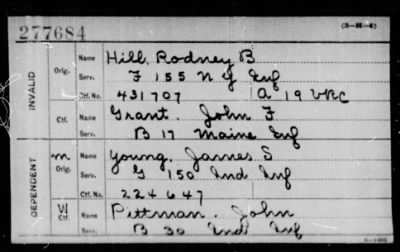 277684
(3-H-4)
INVALID
Orig. Name Hill, Rodney B
Serv. F 155 N Y Inf
Ctf. No. 431707 A 19 VRC
Ctf. Name Grant, John F
Serv. B 17 Maine Inf
DEPENDENT
m Orig. Name Young, James S
Serv. G 150 Ind Inf
Ctf. No. 224647
W Ctf. Name Pittman, John
Serv. B 30 Ind Inf